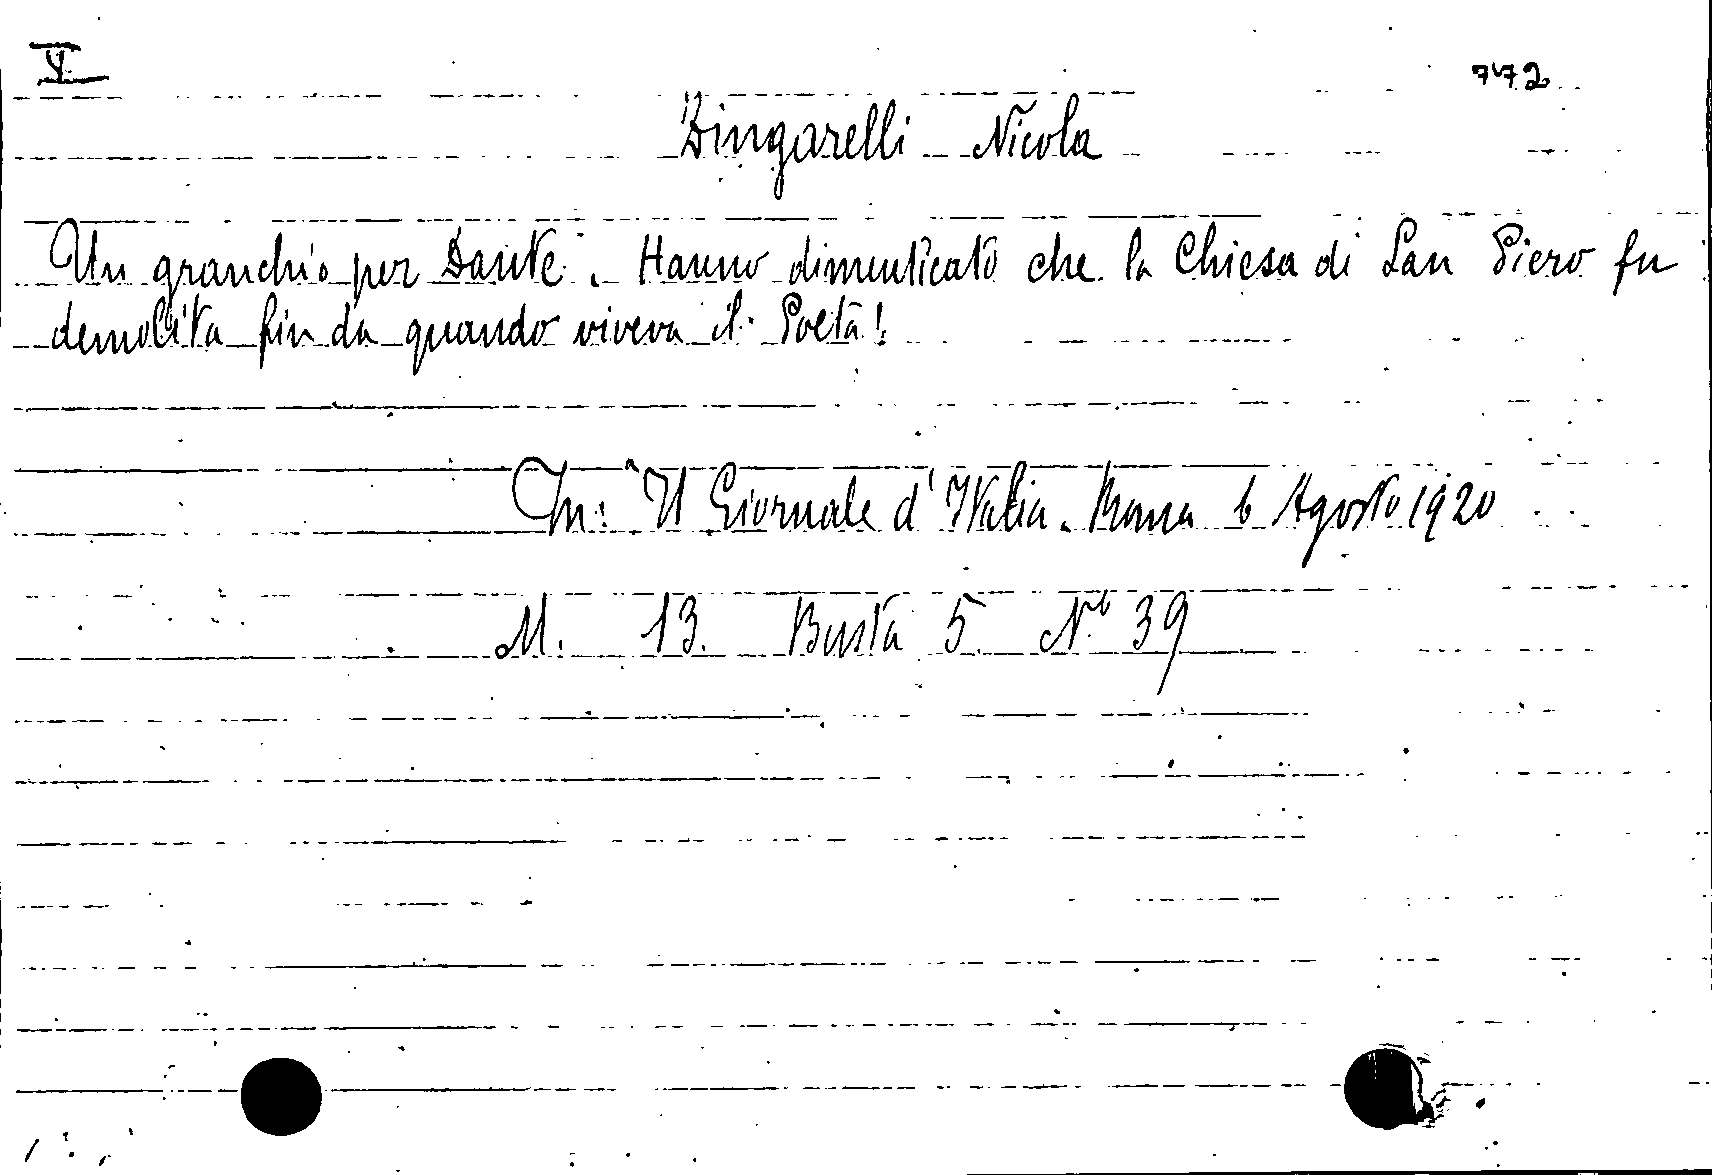 V 772
Zingarelli Nicola
Un granchio per Dante. Hanno dimenticato che la Chiesa di San Piero fu
demolita fin da quando viveva il Poeta!
In: "Il Giornale d'Italia. Roma 6 Agosto 1920
M. 13. Busta 5 No 39